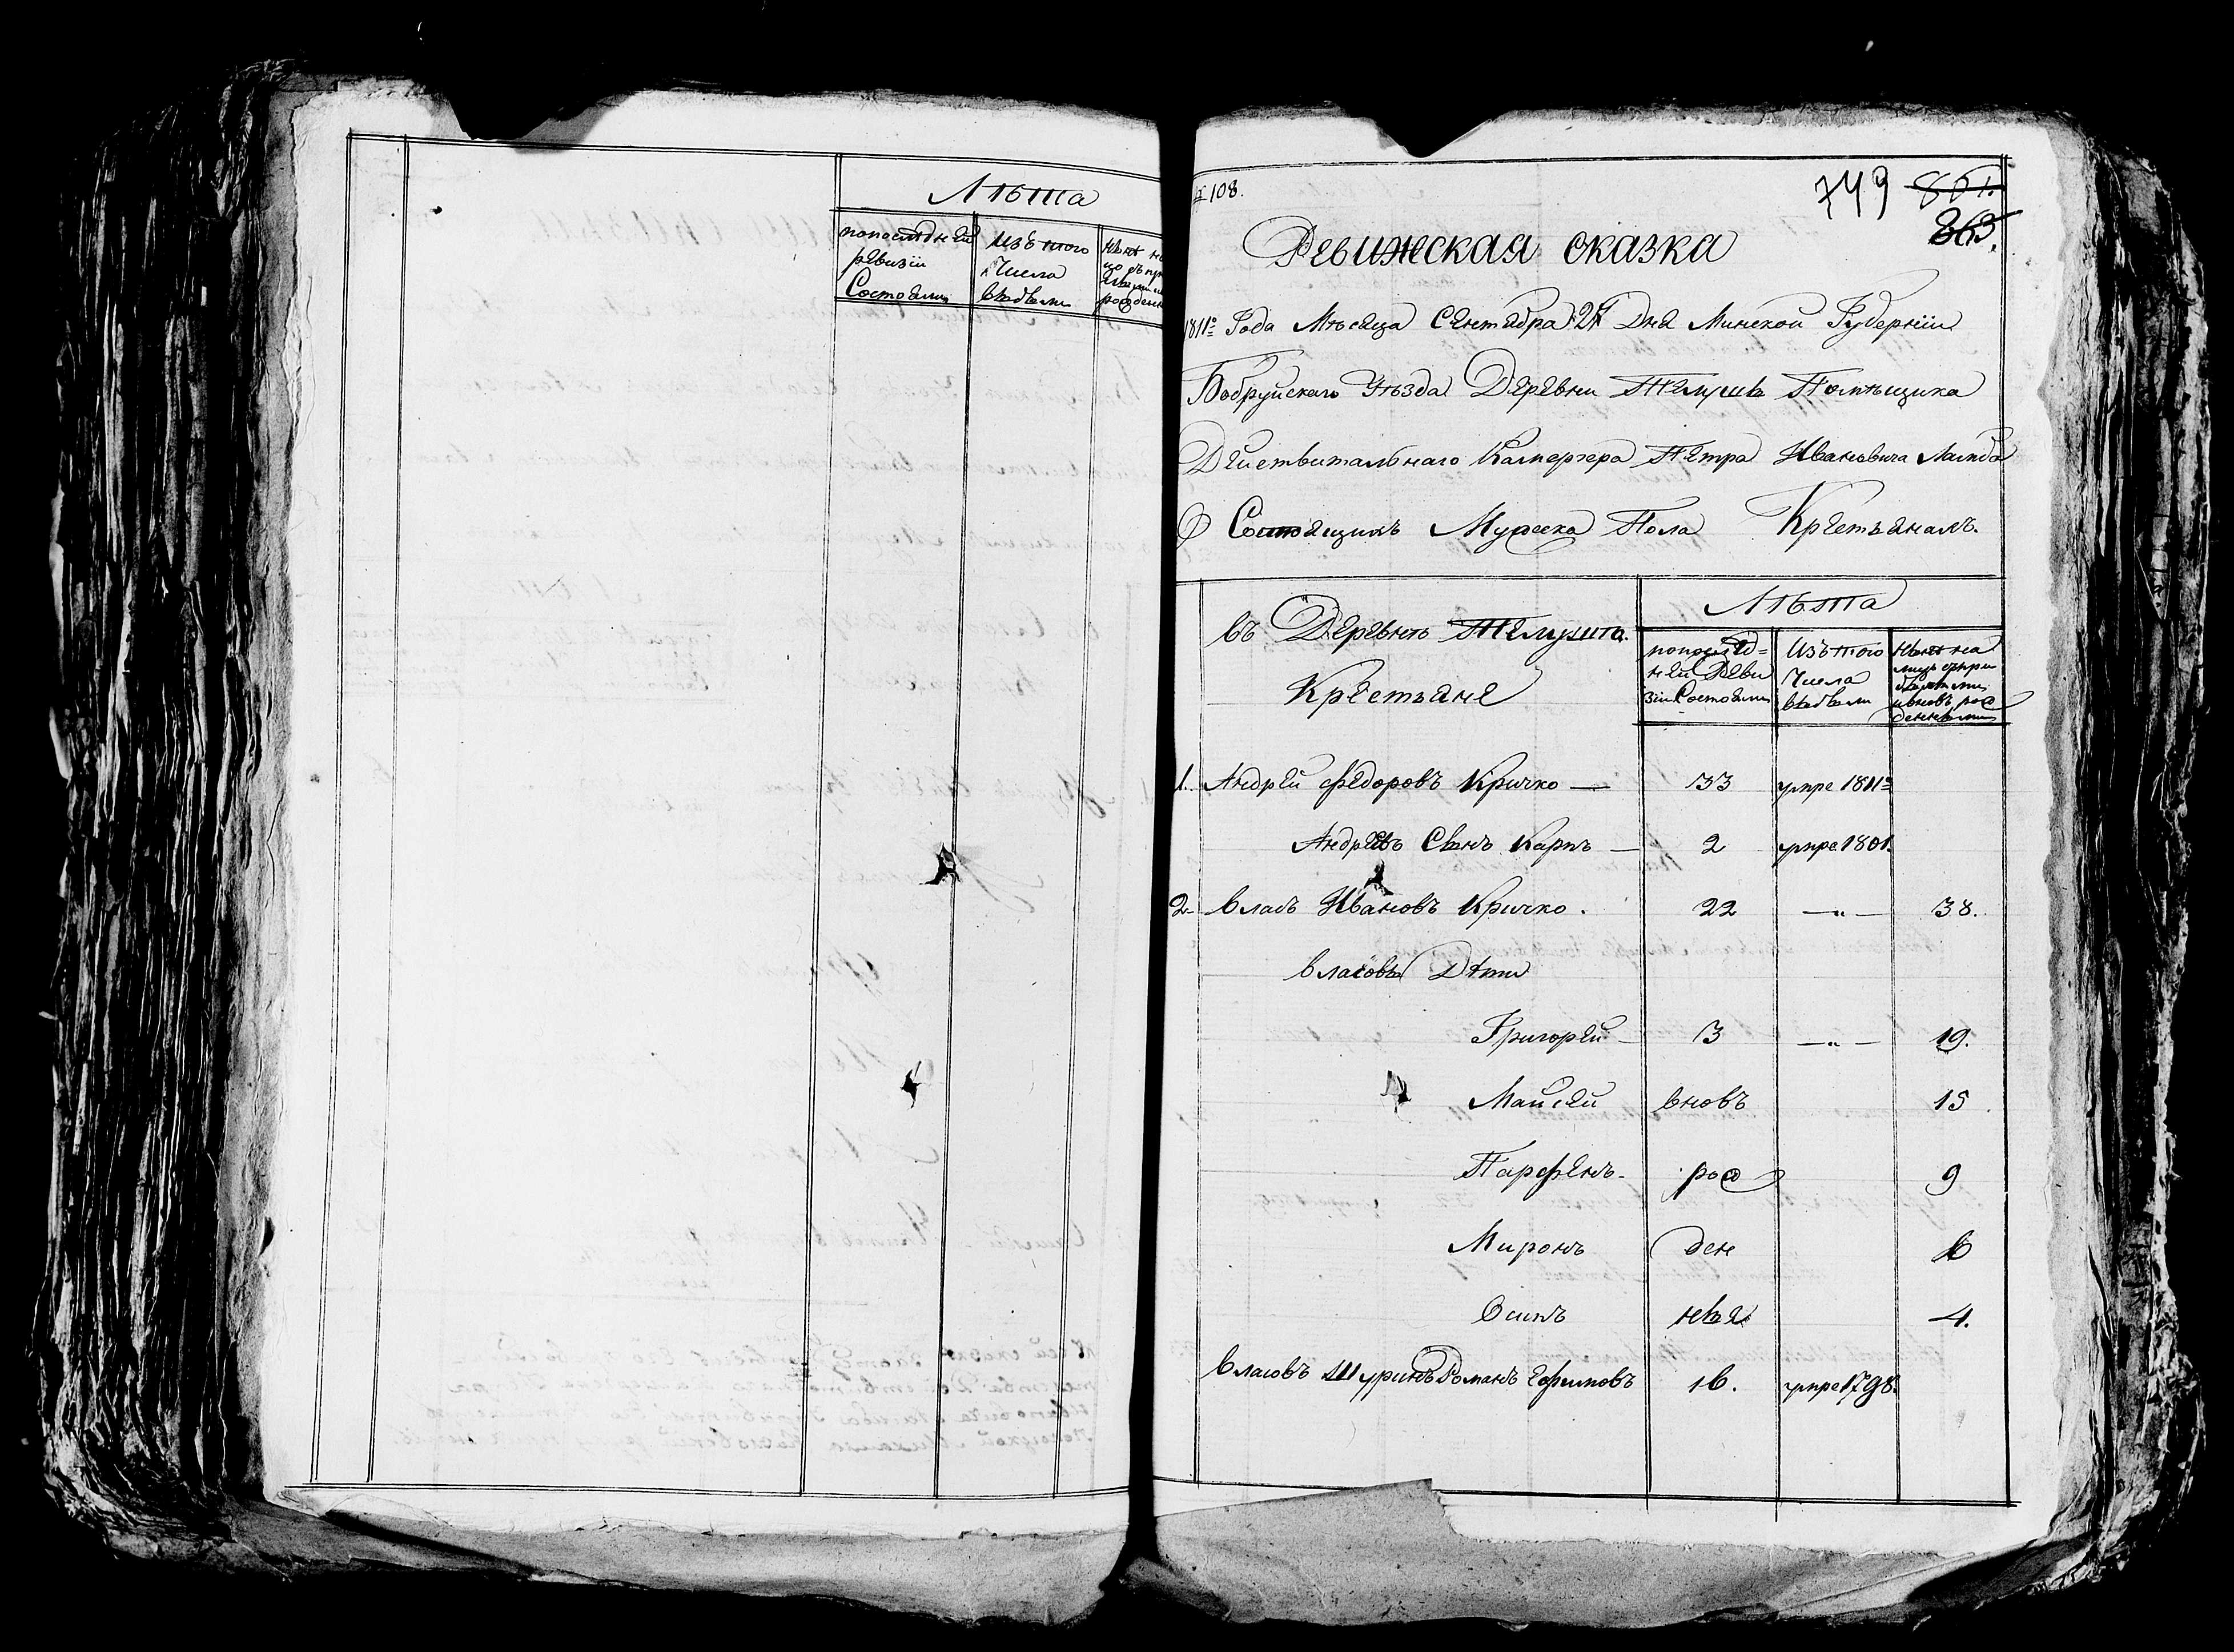 Лѣта
попослѣдней ревизіи Состояли
Изъ того Числа выбыли
№ 108.
749 861.
863.
Ревижская сказка
1811го Года Мѣсяца Сентября 21 Дня Минской Губерніи
Бобруйскаго Уѣзда Деревни Телуши Помѣщика
Дѣйствитальнаго Камергера Петра Ивановича Ланда
О Состоящихъ Мужеска Пола Крестьянахъ.
въ Деревнѣ Телушѣ.
Крестьяне
Лѣта
попослѣд=
ней Реви
зіи Состояли
Изъ того
Числа
выбыли
Ныне на
лицо сьпри
былыми
ивновь рож
денными
1. Андрей Федоровъ Кричко — 33 умре 1811го
Андреевъ Сынъ Карпъ — 2 умре 1801.
2 Власъ Ивановъ Кричко . 22 —„— 38.
Власовы Дѣти
Григорей — 3 —„— 19.
Майсей вновь 15
Парфенъ- рож 9
Миронъ ден 6
Осипъ ные 4.
Власовъ Шуринъ Романъ Ефимовъ 16. умре 1798.